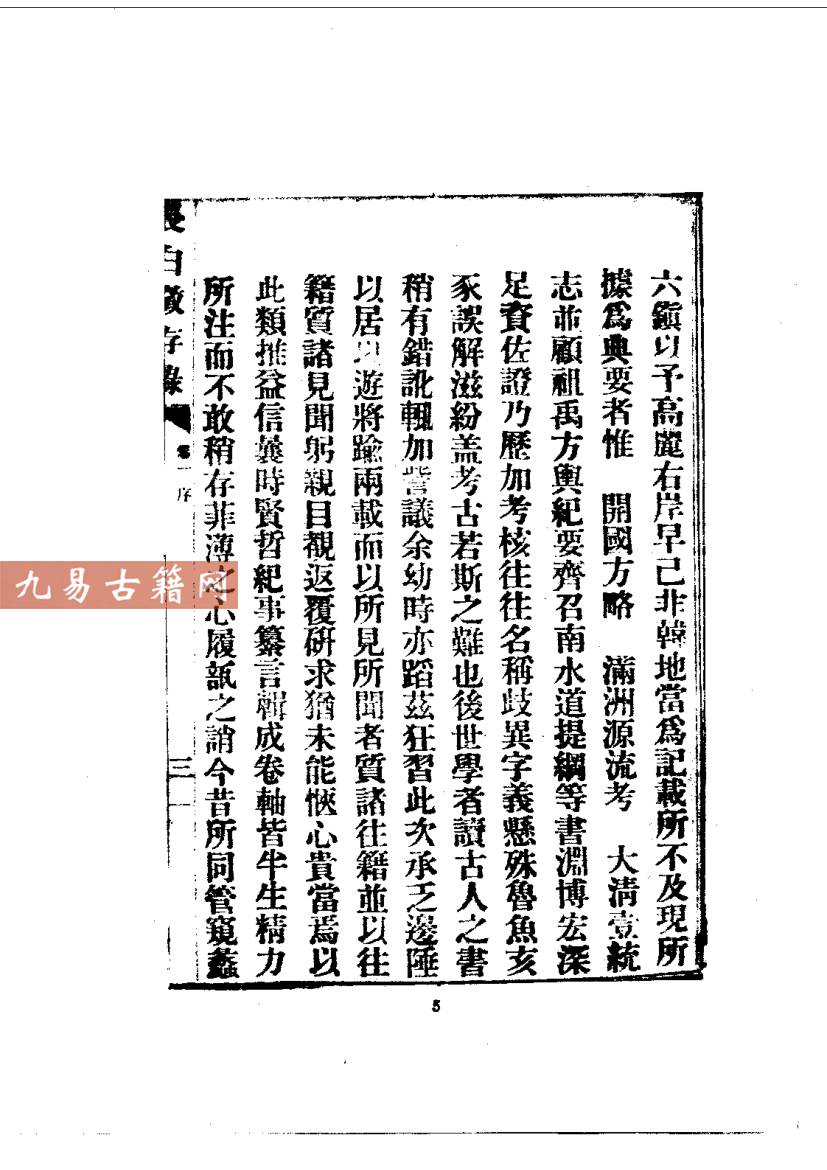 六鎮以予高麗右岸早已非韓地當爲記載所不及現所
據爲典要者惟 開國方略 滿洲源流考 大淸壹統
志並顧祖禹方輿紀要齊召南水道提綱等書淵博宏深
足資佐證乃歷加考核往往名稱歧異字義懸殊魯魚亥
豕誤解滋紛盖考古若斯之難也後世學者讀古人之書
稍有錯訛輒加訾議余幼時亦蹈茲狂習此次承乏邊陲
以居以遊將踰兩載而以所見所聞者質諸往籍並以往
籍質諸見聞躬親目覩返覆研求猶未能愜心貴當焉以
此類推益信曩時賢哲紀事纂言輯成卷軸皆半生精力
所注而不敢稍存菲薄之心履瓿之誚今昔所同管窺蠡
長白徵存錄
序
三
5
九易古籍网